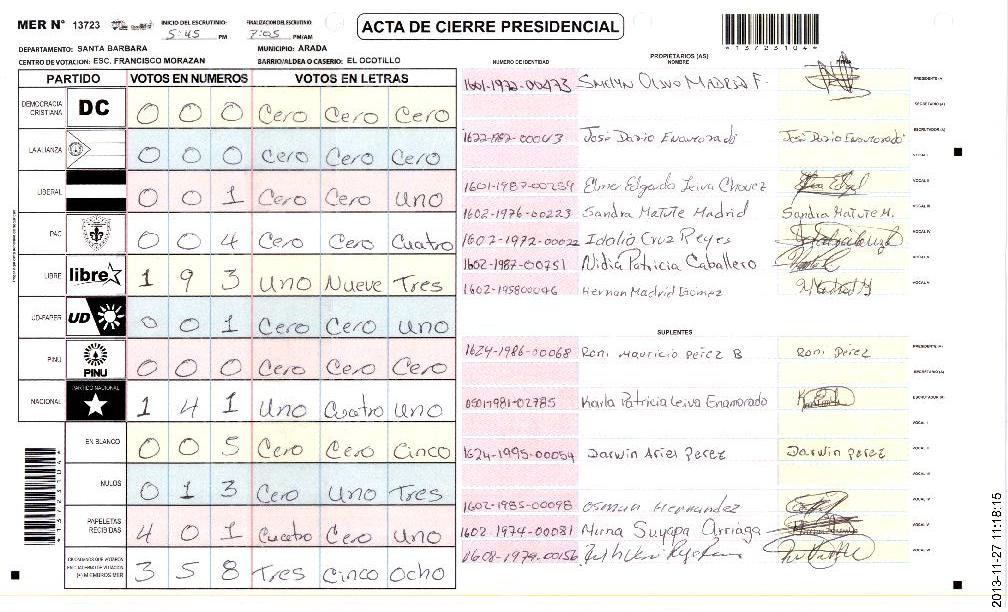 MER N° 13723 INICIO DEL ESCRUTINIO: 5:45 PM FINALIZACION DEL ESCRUTINIO 7:05 PM/AM
ACTA DE CIERRE PRESIDENCIAL
DEPARTAMENTO: SANTA BARBARA MUNICIPIO: ARADA
CENTRO DE VOTACION: ESC. FRANCISCO MORAZAN BARRIO/ALDEA O CASERIO: EL OCOTILLO
PARTIDO VOTOS EN NUMEROS VOTOS EN LETRAS
DEMOCRACIA CRISTIANA DC 0 0 0 Cero Cero Cero
LA ALIANZA 0 0 0 Cero Cero Cero
LIBERAL 0 0 1 Cero Cero Uno
PAC 0 0 4 Cero Cero Cuatro
LIBRE libre 1 9 3 Uno Nueve Tres
UD-FAPER UD 0 0 1 Cero Cero Uno
PINU PINU 0 0 0 Cero Cero Cero
NACIONAL PARTIDO NACIONAL 1 4 1 Uno Cuatro Uno
EN BLANCO 0 0 5 Cero Cero Cinco
NULOS 0 1 3 Cero Uno Tres
PAPELETAS RECIBIDAS 4 0 1 Cuatro Cero Uno
CIUDADANOS QUE VOTARON EN CUADERNO DE VOTACION (+) MIEMBROS MER 3 5 8 Tres Cinco Ocho
NUMERO DE IDENTIDAD PROPIETARIOS (AS) NOMBRE
1601-1972-00473 Madrid F. PRESIDENTE (A)
SECRETARIO (A)
1622-1987-00043 José Dario Enamorado José Dario Enamorado ESCRUTADOR (A)
VOCAL I
1601-1987-00259 Elmer Edgardo Leiva Chavez VOCAL II
1602-1976-00223 Sandra Matute Madrid Sandra Matute M. VOCAL III
1602-1972-00022 Idalia Cruz Reyes VOCAL IV
1602-1987-00751 Nidia Patricia Caballero VOCAL V
1602-195800046 Hernan Madrid Gomez VOCAL VI
SUPLENTES
1624-1986-00068 Roni Mauricio Perez B Roni Perez PRESIDENTE (A)
SECRETARIO (A)
0501-1981-02785 Karla Patricia Leiva Enamorado ESCRUTADOR (A)
VOCAL I
1624-1995-00054 Darwin Ariel Perez Darwin perez VOCAL II
VOCAL III
1602-1985-00098 Osman Hernandez VOCAL IV
1602-1974-00081 Mirna Suyapa Arriaga VOCAL V
1608-1979-00156 VOCAL VI
13723104
13723104
2013-11-27 11:18:15